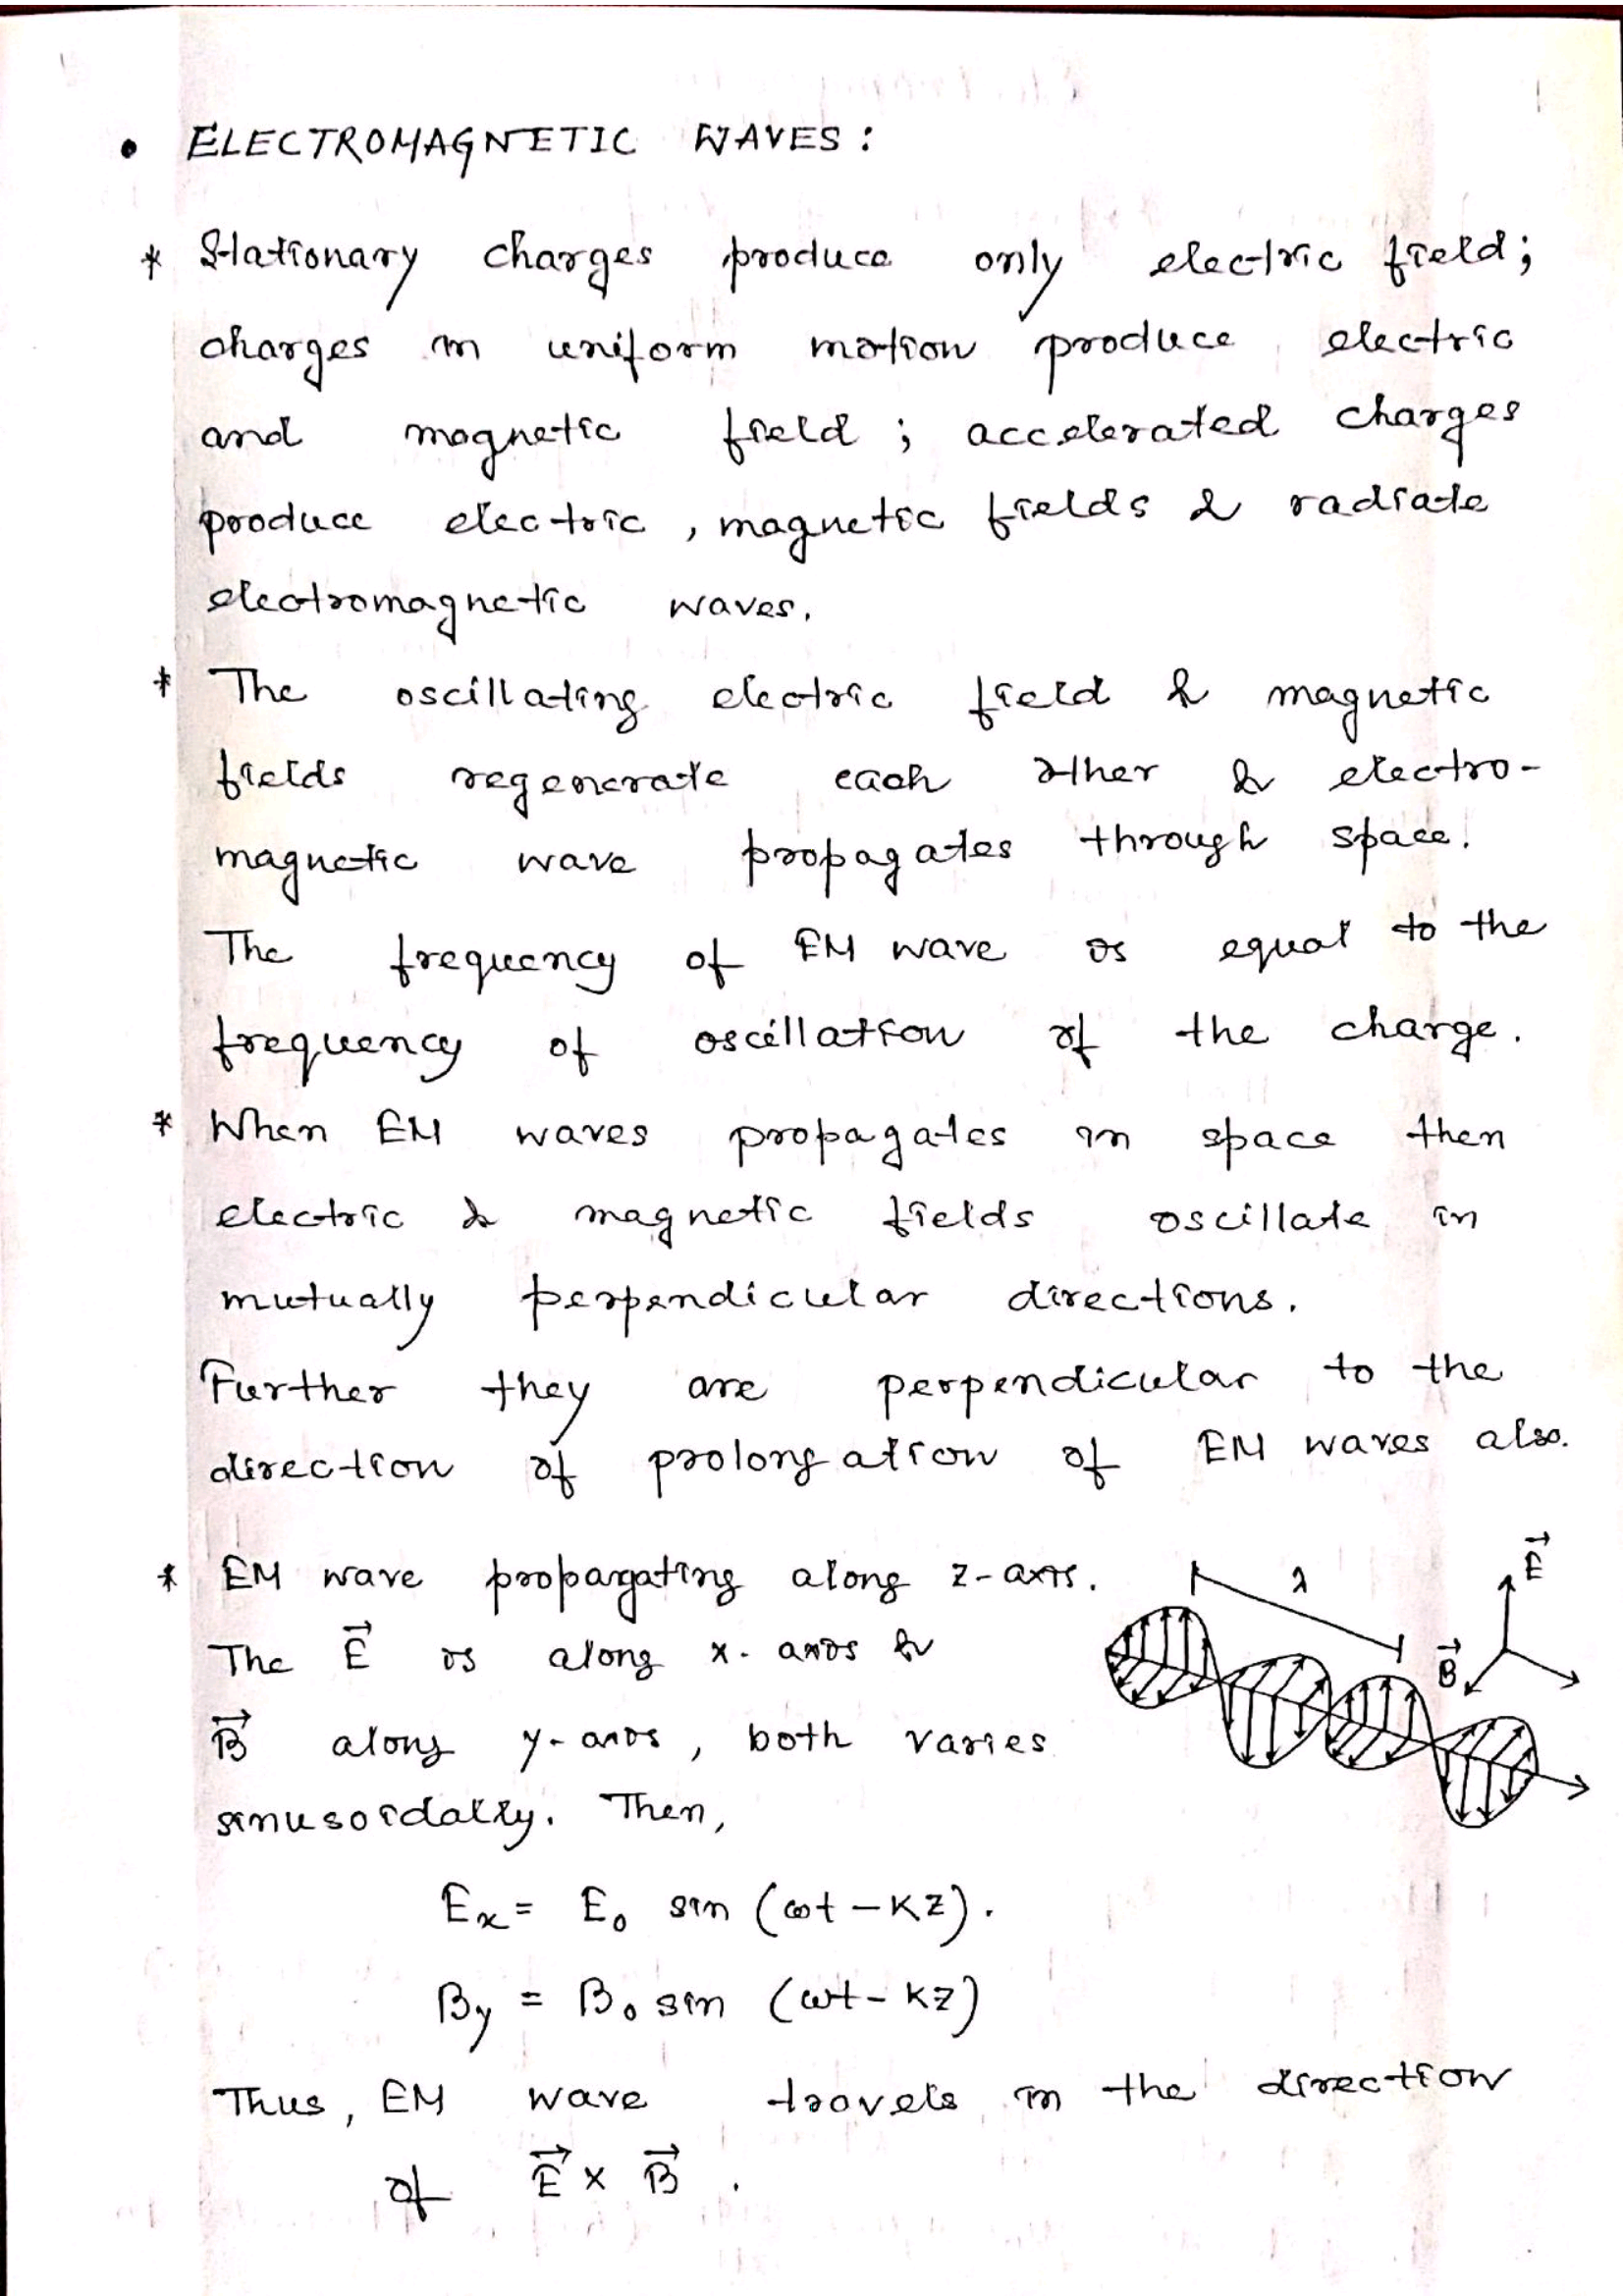 • ELECTROMAGNETIC WAVES :
* Stationary charges produce only electric field;
charges in uniform motion produce electric
and magnetic field ; accelerated charges
produce electric , magnetic fields & radiate
electromagnetic waves.
* The oscillating electric field & magnetic
fields regenerate each other & electro-
magnetic wave propagates through space.
The frequency of EM wave is equal to the
frequency of oscillation of the charge.
* When EM waves propagates in space then
electric & magnetic fields oscillate in
mutually perpendicular directions.
Further they are perpendicular to the
direction of prolongation of EM waves also.
* EM wave propagating along z-axis.
The E⃗ is along x-axis &
B⃗ along y-axis , both varies
sinusoidally. Then,
λ
E⃗
B⃗
Eₓ = E₀ sin (ωt – Kz).
By = B₀ sin (ωt – Kz)
Thus , EM wave travels in the direction
of E⃗ × B⃗ .